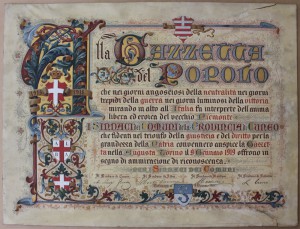 Alla
GAZZETTA
del POPOLO
che nei giorni angosciosi della neutralità nei giorni
trepidi della guerra nei giorni luminosi della vittoria
mirando in alto all'Italia fu interprete dell'anima
libera ed eroica del vecchio Piemonte
I SINDACI DEI COMUNI DELLA PROVINCIA CUNEO
che fidenti nel trionfo della giustizia e del diritto per la
grandezza della Patria convennero auspice la Gazzet
ta nella Augusta Torino il 9 Gennaio 1919 offrono in
segno di ammirazione di riconoscenza.
dei Comuni
Il Sindaco di Cuneo
Il Sindaco di
Il Sindaco di
Il Sindaco di